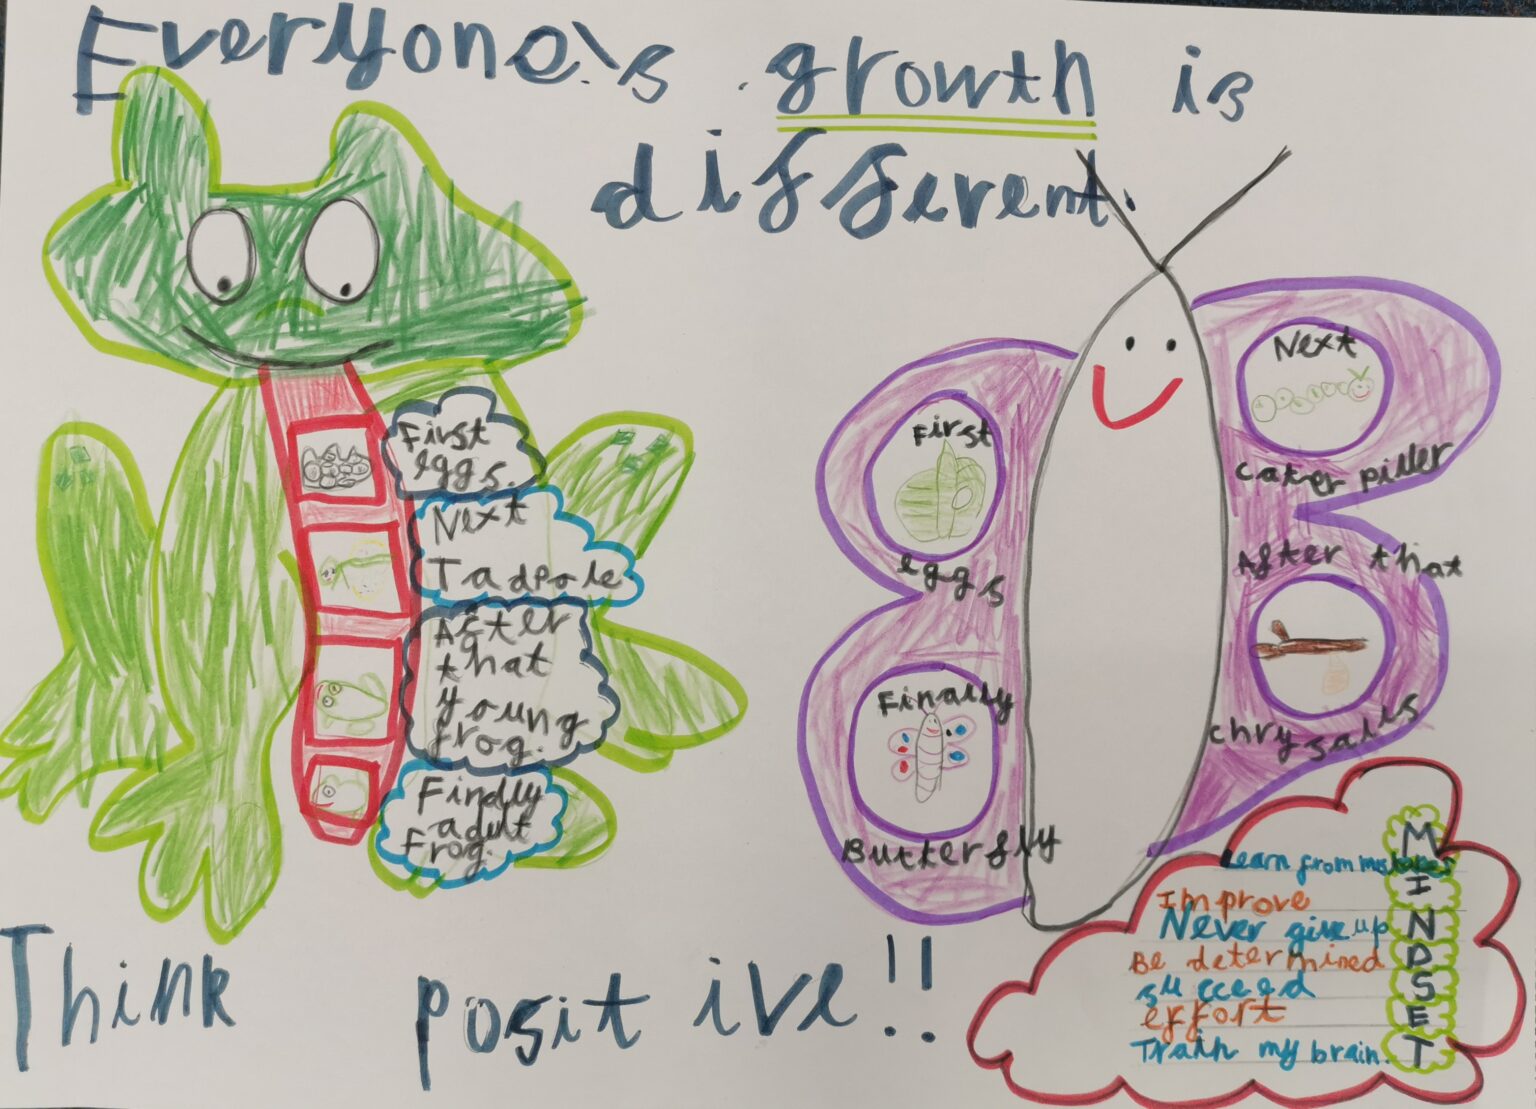 Everyone's growth is
different.
First
eggs.
Next
Tadpole
After
that
young
frog.
Finally
adult
frog.
First
eggs
Next
caterpiller
After that
chrysalis
Finally
Butterfly
MINDSET
Learn from mistakes
Improve
Never give up
Be determined
succeed
effort
Train my brain.
Think positive!!